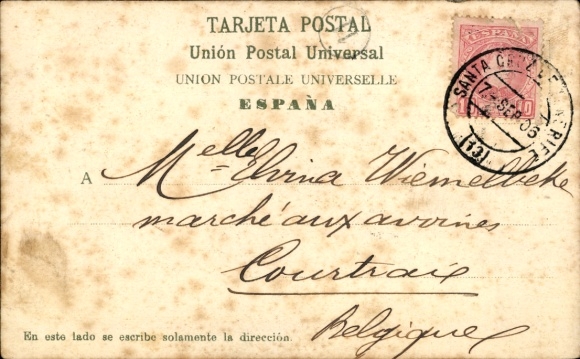 TARJETA POSTAL
Unión Postal Universal
UNION POSTALE UNIVERSELLE
ESPAÑA
ESPAÑA
10
SANTA CRUZ DE TENERIFE
7 SEP 06
A Melle Elvina Wiemelbeke
marché aux avoines
Courtrai
Belgique
En este lado se escribe solamente la dirección.